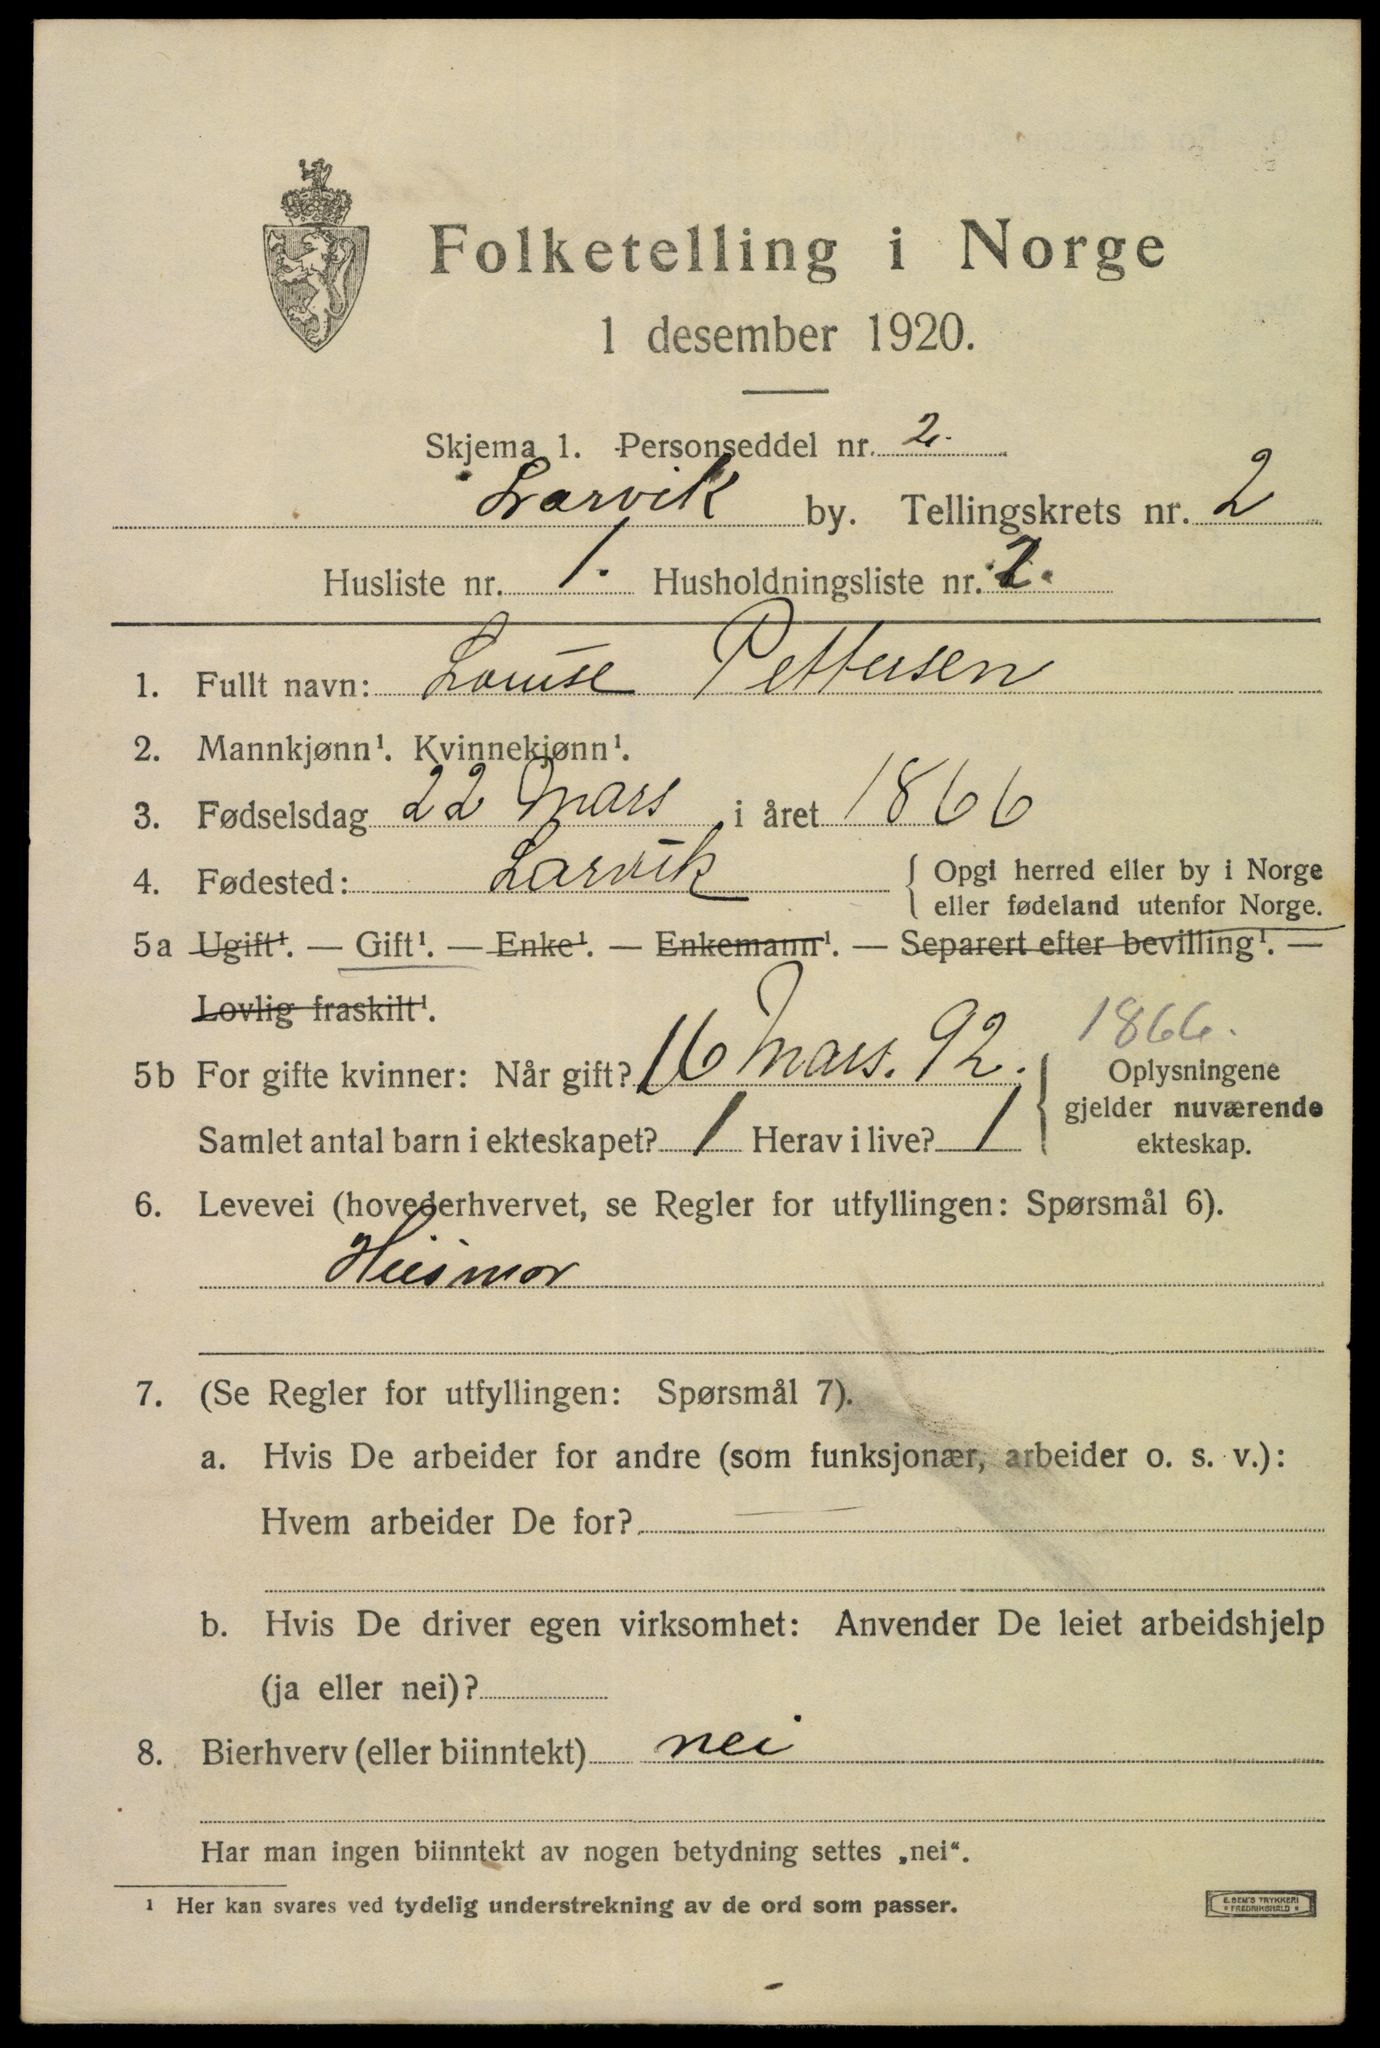 Folketelling i Norge
1 desember 1920.
Skjema 1. Personseddel nr. 2.
Larvik by. Tellingskrets nr. 2
Husliste nr. 1. Husholdningsliste nr. 2.
1. Fullt navn: Louise Pettersen
2. Mannkjønn¹. Kvinnekjønn¹.
3. Fødselsdag 22 Mars i året 1866
4. Fødested: Larvik { Opgi herred eller by i Norge
eller fødeland utenfor Norge.
5a Ugift¹. — Gift¹. — Enke¹. — Enkemann¹. — Separert efter bevilling¹. —
Lovlig fraskilt¹.
1866.
5b For gifte kvinner: Når gift? 16 Mars. 92. { Oplysningene
gjelder nuværende
Samlet antal barn i ekteskapet? 1 Herav i live? 1 ekteskap.
6. Levevei (hovederhvervet, se Regler for utfyllingen: Spørsmål 6).
Husmor
7. (Se Regler for utfyllingen: Spørsmål 7).
a. Hvis De arbeider for andre (som funksjonær, arbeider o. s. v.):
Hvem arbeider De for? —
b. Hvis De driver egen virksomhet: Anvender De leiet arbeidshjelp
(ja eller nei)?
8. Bierhverv (eller biinntekt) nei
Har man ingen biinntekt av nogen betydning settes „nei“.
¹ Her kan svares ved tydelig understrekning av de ord som passer.
E. SEM'S TRYKKERI
* FREDRIKSHALD *